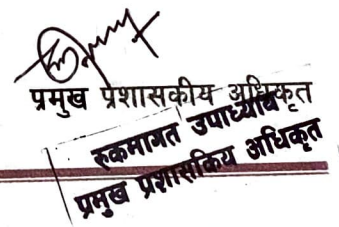 प्रमुख प्रशासकीय अधिकृत
रुकमागत उपाध्याय
प्रमुख प्रशासकिय अधिकृत